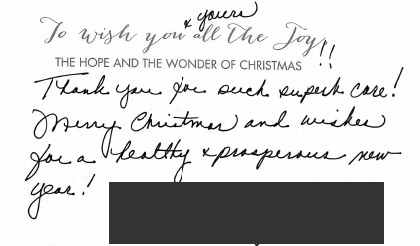 & yours
To wish you all the Joy,!!
THE HOPE AND THE WONDER OF CHRISTMAS
Thank you for such superb care!
Merry Christmas and wishes
for a healthy & prosperous new
year!